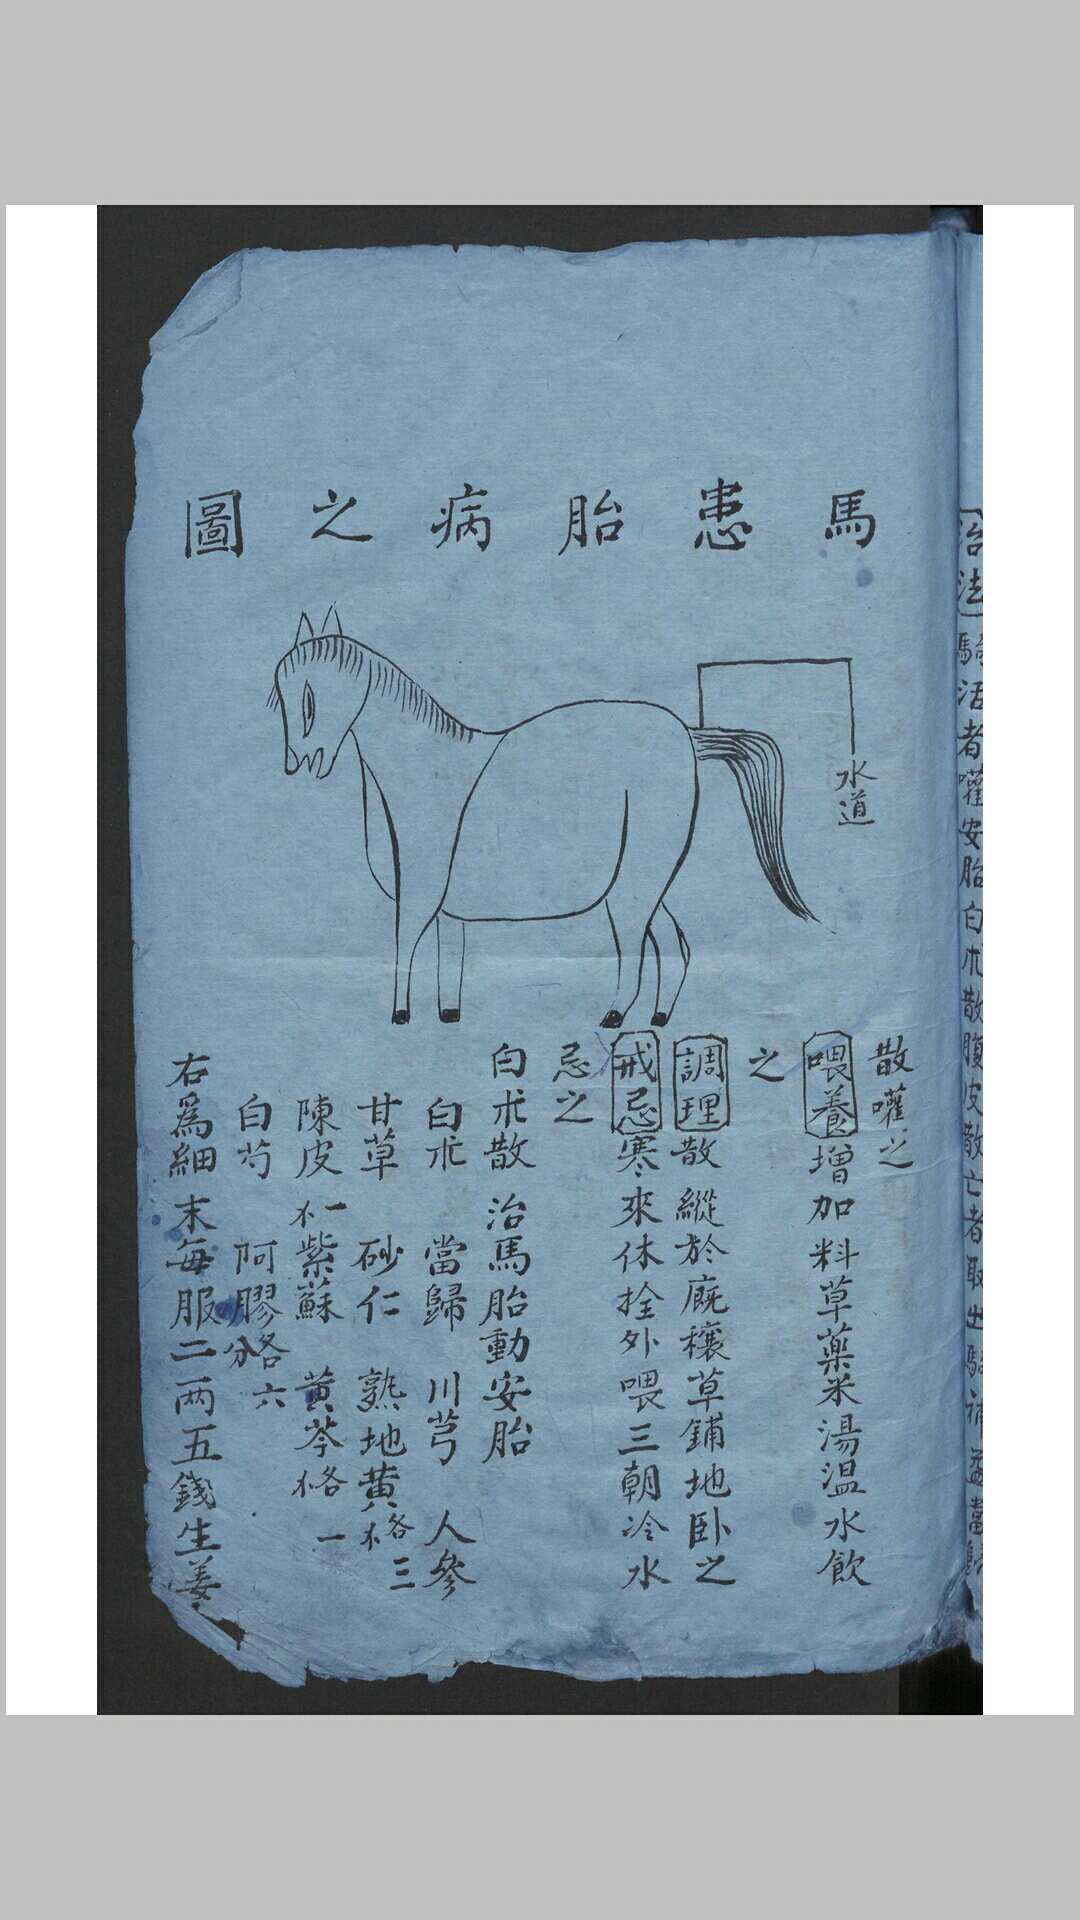 馬患胎病之圖
水道
治法騸活者嚾安胎白朮散腹皮散亡者取出騸補益當歸
散嚾之
喂養增加料草薬米湯温水飲
之
調理散縱於廐穰草鋪地卧之
戒忌寒來休拴外喂三朝冷水
忌之
白朮散治馬胎動安胎
白朮 當歸 川芎 人參
甘草 砂仁 熟地黄各三
陳皮 紫蘇 黄芩各一
白芍 阿膠各六分
右爲細末每服二两五錢生姜